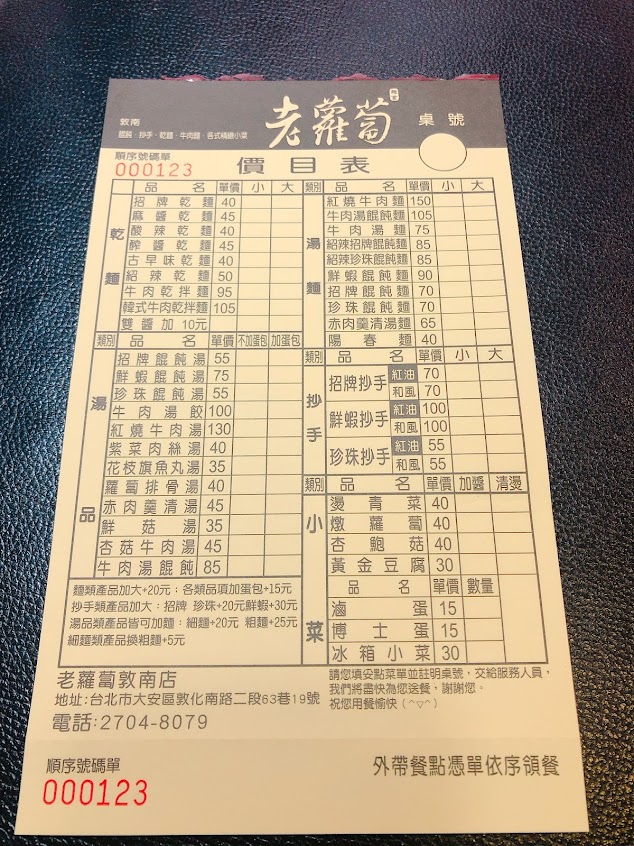 敦南
餛飩、抄手、乾麵、牛肉麵、各式精緻小菜
老蘿蔔
桌號
順序號碼單
000123
價目表
品名 單價 小 大
乾麵
招牌乾麵 40
麻醬乾麵 45
酸辣乾麵 40
醡醬乾麵 45
古早味乾麵 40
紹辣乾麵 50
牛肉乾拌麵 95
韓式牛肉乾拌麵 105
雙醬加10元
類別 品名 單價 小 大
湯麵
紅燒牛肉麵 150
牛肉湯餛飩麵 105
牛肉湯麵 75
紹辣招牌餛飩麵 85
紹辣珍珠餛飩麵 85
鮮蝦餛飩麵 90
招牌餛飩麵 70
珍珠餛飩麵 70
赤肉羹清湯麵 65
陽春麵 40
類別 品名 單價 不加蛋包 加蛋包
湯品
招牌餛飩湯 55
鮮蝦餛飩湯 75
珍珠餛飩湯 55
牛肉湯餃 100
紅燒牛肉湯 130
紫菜肉絲湯 40
花枝旗魚丸湯 35
蘿蔔排骨湯 40
赤肉羹清湯 45
鮮菇湯 35
杏菇牛肉湯 45
牛肉湯餛飩 85
類別 品名 單價 小 大
抄手
招牌抄手 紅油 70
和風 70
鮮蝦抄手 紅油 100
和風 100
珍珠抄手 紅油 55
和風 55
類別 品名 單價 加醬 清燙
小菜
燙青菜 40
燉蘿蔔 40
杏鮑菇 40
黃金豆腐 30
品名 單價 數量
滷蛋 15
博士蛋 15
冰箱小菜 30
麵類產品加大+20元；各類品項加蛋包+15元
抄手類產品加大：招牌 珍珠+20元鮮蝦+30元
湯品類產品皆可加麵：細麵+20元 粗麵+25元
細麵類產品換粗麵+5元
請您填妥點菜單並註明桌號，交給服務人員，
我們將盡快為您送餐，謝謝您。
祝您用餐愉快(^▽^)
老蘿蔔敦南店
地址:台北市大安區敦化南路二段63巷19號
電話:2704-8079
順序號碼單
000123
外帶餐點憑單依序領餐